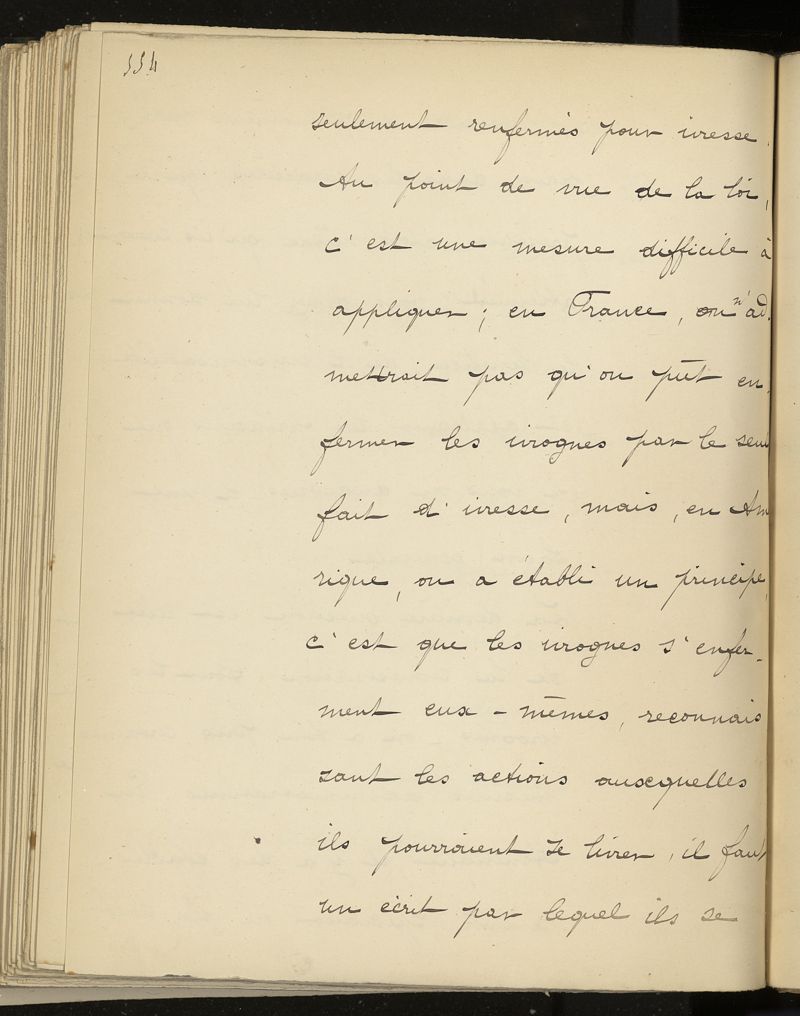 554
seulement renfermés pour ivresse.
Au point de vue de la loi,
c'est une mesure difficile à
appliquer ; en France, on n'ad-
mettrait pas qu'on pût en-
fermer les ivrognes par le seul
fait d'ivresse, mais, en Amé
rique, on a établi un principe,
c'est que les ivrognes s'enfer-
ment eux-mêmes, reconnais
sant les actions auxquelles
ils pourraient se livrer, il faut
un écrit par lequel ils se